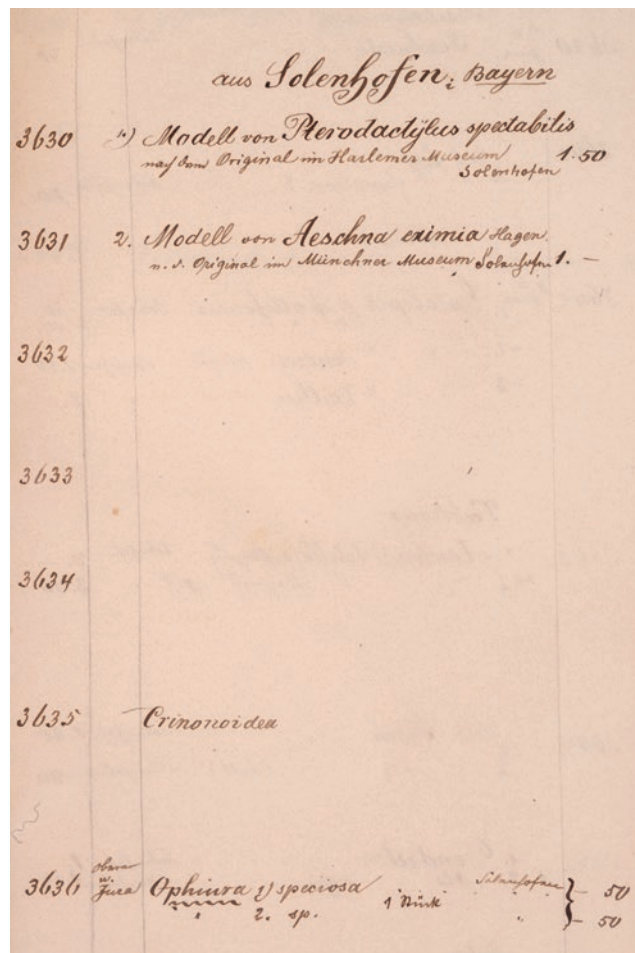 aus Solenhofen: Bayern
3630 1.) Modell von Pterodactylus spectabilis
nach dem Original im Harlemer Museum 1. 50
Solenhofen
3631 2. Modell von Aeschna eximia Hagen.
n. d. Original im Münchner Museum Solenhofen 1. —
3632
3633
3634
3635 Crinonoidea
3636 oberer w. Jura Ophiura 1) speciosa 1 Stück Solenhofen } — 50
" 2. sp. " } — 50